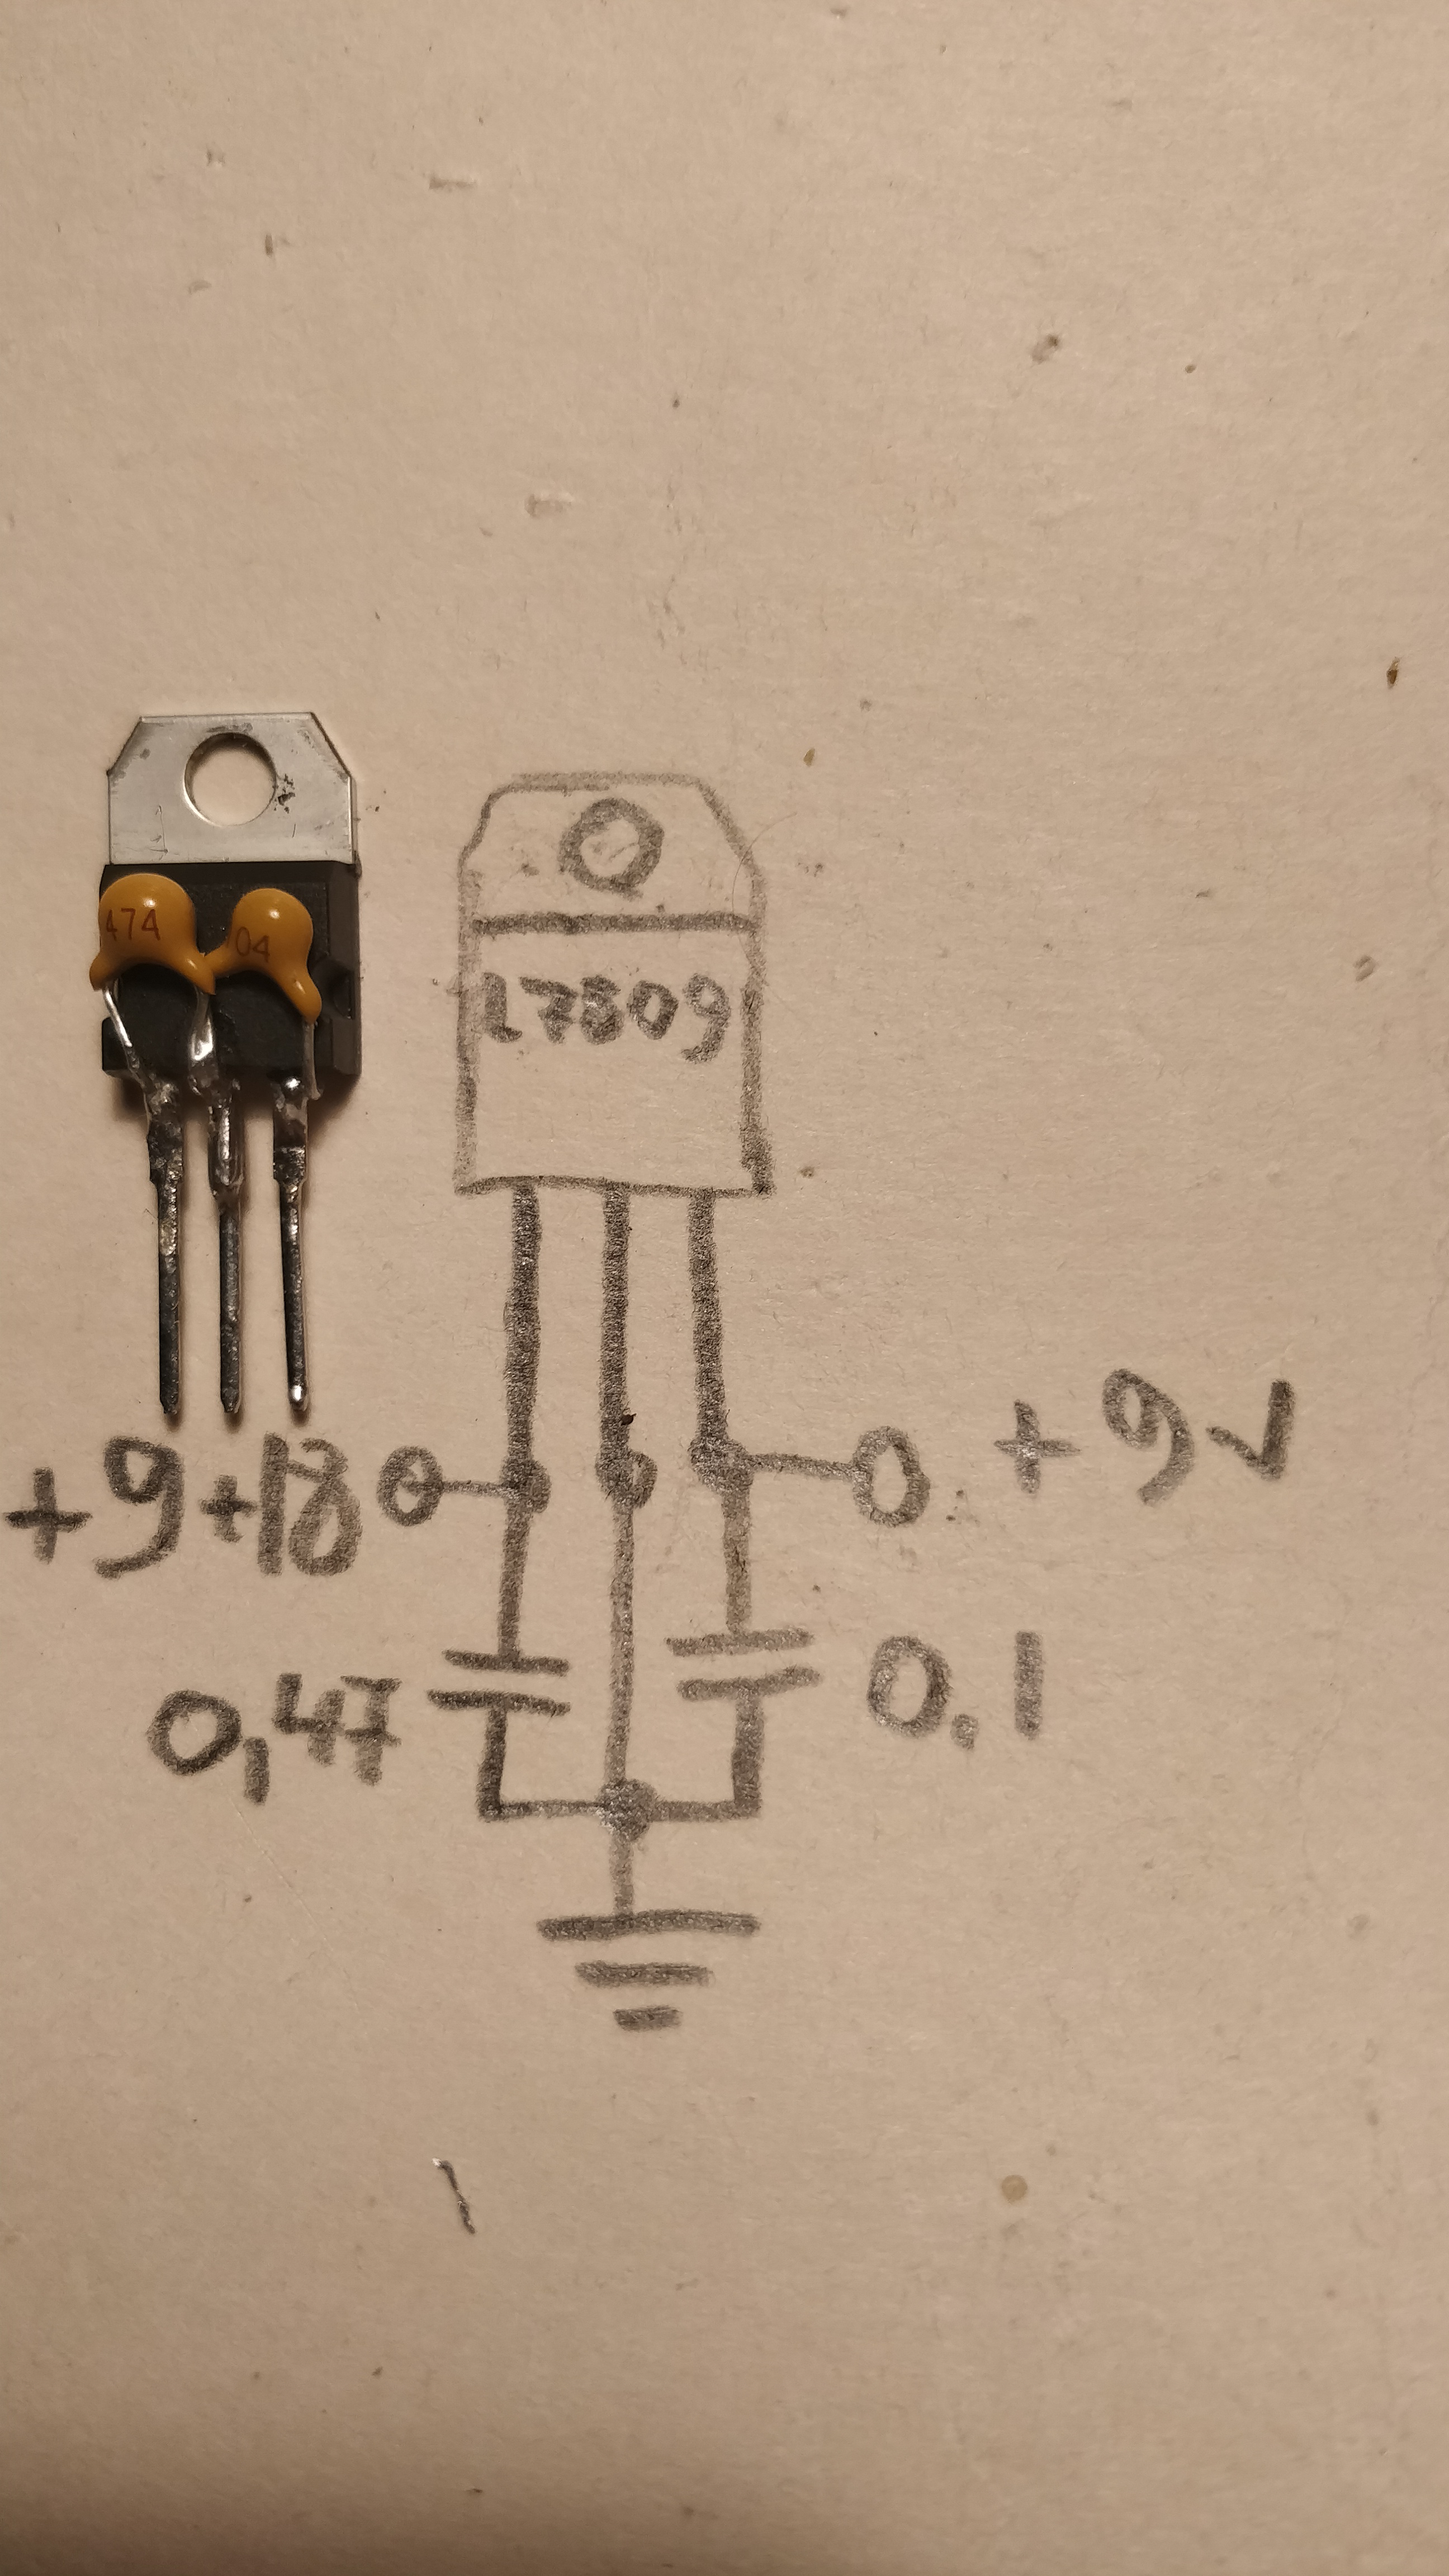 474
04
L7809
+9+18
+9V
0,47
0.1